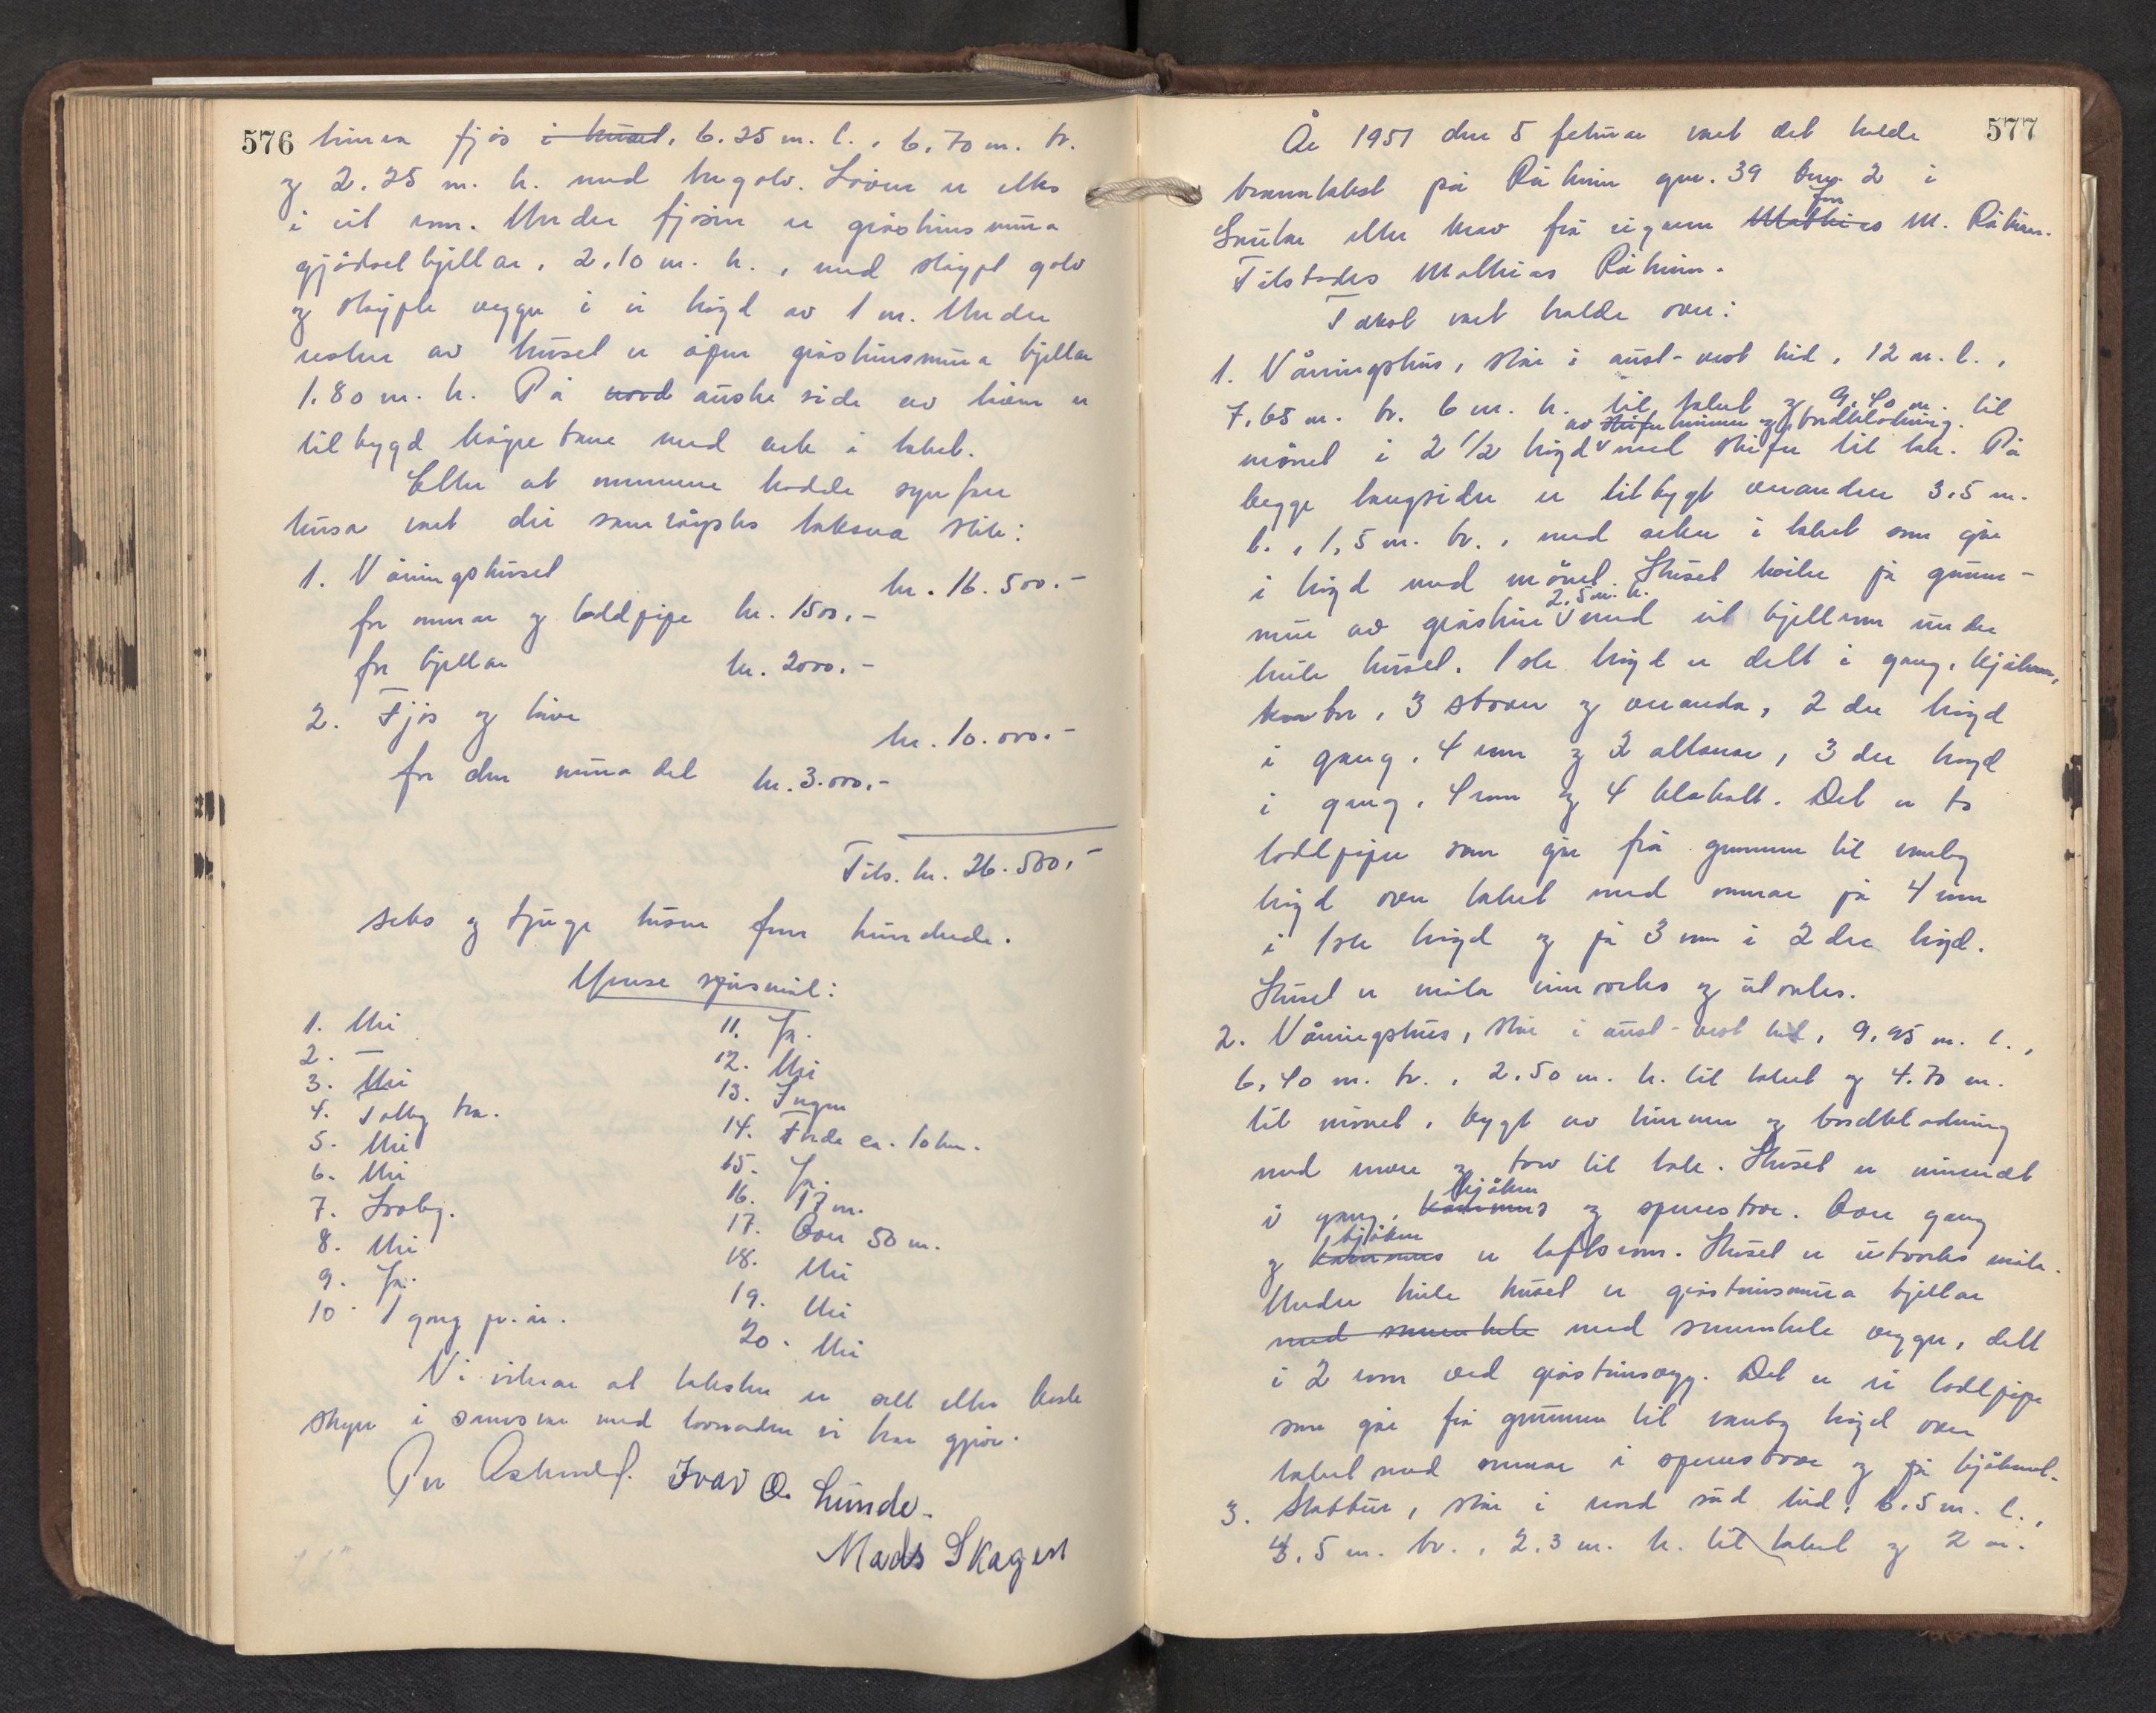 576
timra fjøs i huset, 6.25 m. l., 6.70 m. br.
og 2.25 m. h. med tregolv. Löven er elles
i eit rom. Under fjosen er gråsteinsmura
gjødselkjellar, 2.10 m. h., med støypt golv
og støypte vegger i ei høgd av 1 m. Under
resten av huset er open gråsteinsmura kjellar
1.80 m. h. På nord austre side av löem er
tilbygd køyretane med ark i taket.
Etter at mennene hadde synfare
husa vart dei samrøystes taksera slik:
1. Våningshuset kr. 16.500.-
for omnar og loddpipe kr. 1500.-
for kjellar kr. 2000.-
2. Fjøs og löve kr. 10.000.-
for den mura del kr. 3.000.-
Tils. kr. 26.500.-
seks og tjuge tusen fem hundrede.
Ymse spursmål:
1. Nei
2. —
3. Nei
4. Solbg tra.
5. Nei
6. Nei
7. Lovleg.
8. Nei
9. Ja.
10. 1 gong pr. år.
11. Ja.
12. Nei
13. Ingen
14. Förde ca. 10 km.
15. Ja.
16. 17 m.
17. Over 50 m.
18. Nei
19. Nei
20. Nei
Vi vitnar at taksten er sett etter beste
skyn i samsvar med lovnaden vi har gjort.
Per Ivar O. Lunde.
Mads Skagen
577
År 1951 den 5 februar vart det halde
branntakst på Råheim gnr. 39 bnr. 2 i
Jon
Jaulen etter krav frå eigaren Mathias M. Råheim.
Tilstades Mathias Råheim.
Takst vart halde over:
1. Våningshus, står i aust-vest leid, 12 m. l.,
7,65 m. br. 6 m. h. til taket og 9.40 m. til
av skifer timmer og bordkledning.
mønet i 2 1/2 høgd v med skifer til tak. På
begge langsider er tilbygt verandaer 3.5 m.
l., 1,5 m. br., med arker i taket som går
i høgd med mønet. Huset kviler på grunn-
2,5 m. h.
mur av gråstein v med eit kjellerrom under
heile huset. 1ste høgd er delt i gang, kjøken,
kontor, 3 stover og veranda, 2 dre høgd
i gang, 4 rom og 2 altanar, 3 dre høgd
i gang, 4 rom og 4 klekott. Det er to
loddpiper som går frå grunnen til vanleg
høgd over taket med omnar på 4 rom
i 1ste høgd og på 3 rom i 2 dre høgd.
Huset er måla innvortes og utvortes.
2. Våningshus, står i aust-vest leid, 9,95 m. l.,
6,40 m. br., 2.50 m. h. til taket og 4.70 m.
til mønet, bygt av timmer og bordkledning
med never og torv til tak. Huset er innreidt
kjøken
i gang, kammers og sperrestove. Over gang
kjøken
og kammers er loftsrom. Huset er utvortes måla.
Under heile huset er gråsteinsmura kjellar
med smurde med smurnde vegger, delt
i 2 rom ved gråsteinsvegg. Det er ei loddpipe
som går frå grunnen til vanleg høgd over
taket med omnar i sperrestove og på kjøkenet.
3. Stabbur, står i nord sud leid, 6.5 m. l.,
4,5 m. br., 2.3 m. h. til taket og 2 m.